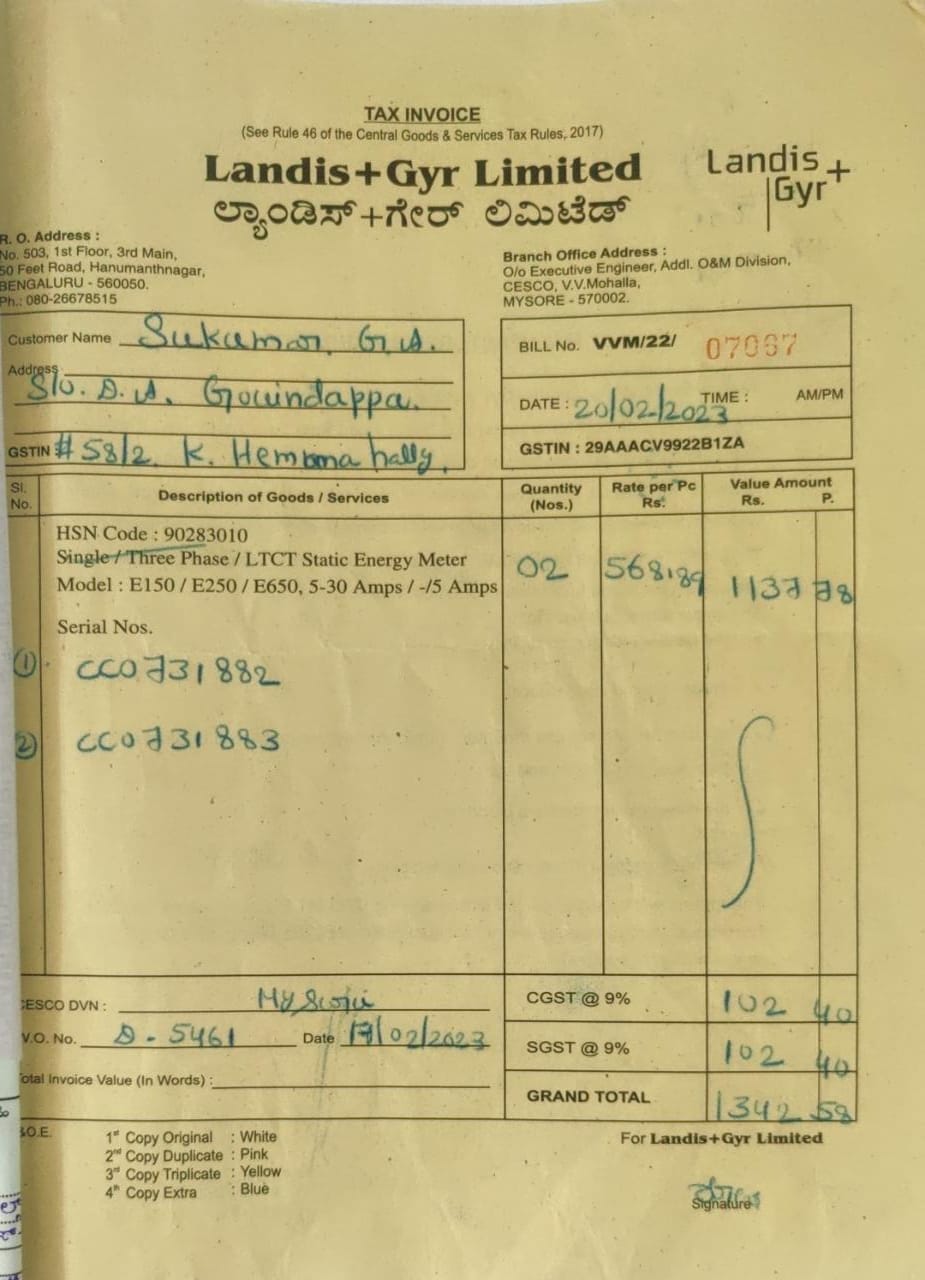 TAX INVOICE
(See Rule 46 of the Central Goods & Services Tax Rules, 2017)
Landis+Gyr Limited
ಲ್ಯಾಂಡಿಸ್+ಗೇರ್ ಲಿಮಿಟೆಡ್
Landis+
Gyr
R. O. Address :
No. 503, 1st Floor, 3rd Main,
50 Feet Road, Hanumanthnagar,
BENGALURU - 560050.
Ph.: 080-26678515
Branch Office Address :
O/o Executive Engineer, Addl. O&M Division,
CESCO, V.V.Mohalla,
MYSORE - 570002.
Customer Name Sukumar. G.A.
Address
S/o. D.A. Govindappa.
GSTIN #58/2 K. Hemmanahally,
BILL No. VVM/22/ 07087
DATE : 20/02/2023 TIME : AM/PM
GSTIN : 29AAACV9922B1ZA
Sl. No. Description of Goods / Services Quantity (Nos.) Rate per Pc Rs. Value Amount Rs. P.
HSN Code : 90283010
Single / Three Phase / LTCT Static Energy Meter
Model : E150 / E250 / E650, 5-30 Amps / -/5 Amps
02 568.89 1137 78
Serial Nos.
① CC0731882
② CC0731883
CESCO DVN :
CGST @ 9% 102 40
V.O. No. D - 5461 Date 17/02/2023
SGST @ 9% 102 40
Total Invoice Value (In Words) :
GRAND TOTAL 1342 58
&.O.E.
1st Copy Original : White
2nd Copy Duplicate : Pink
3rd Copy Triplicate : Yellow
4th Copy Extra : Blue
For Landis+Gyr Limited
Signature